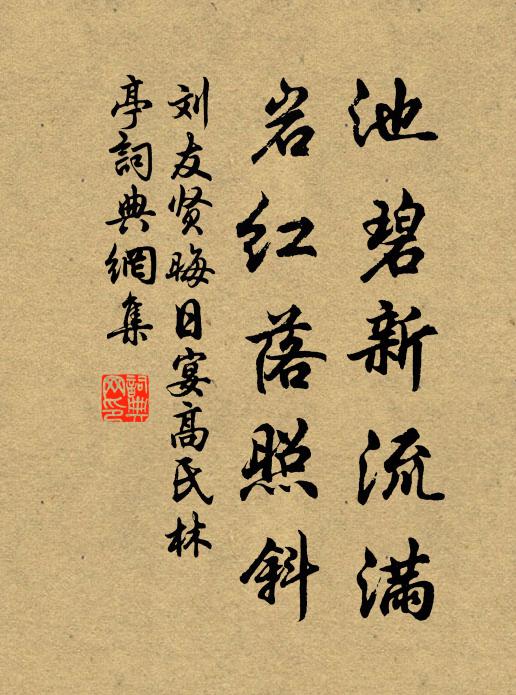 池碧新流满
岩红落照斜
刘友贤晦日宴高氏林
亭詞典網集
詞典网印